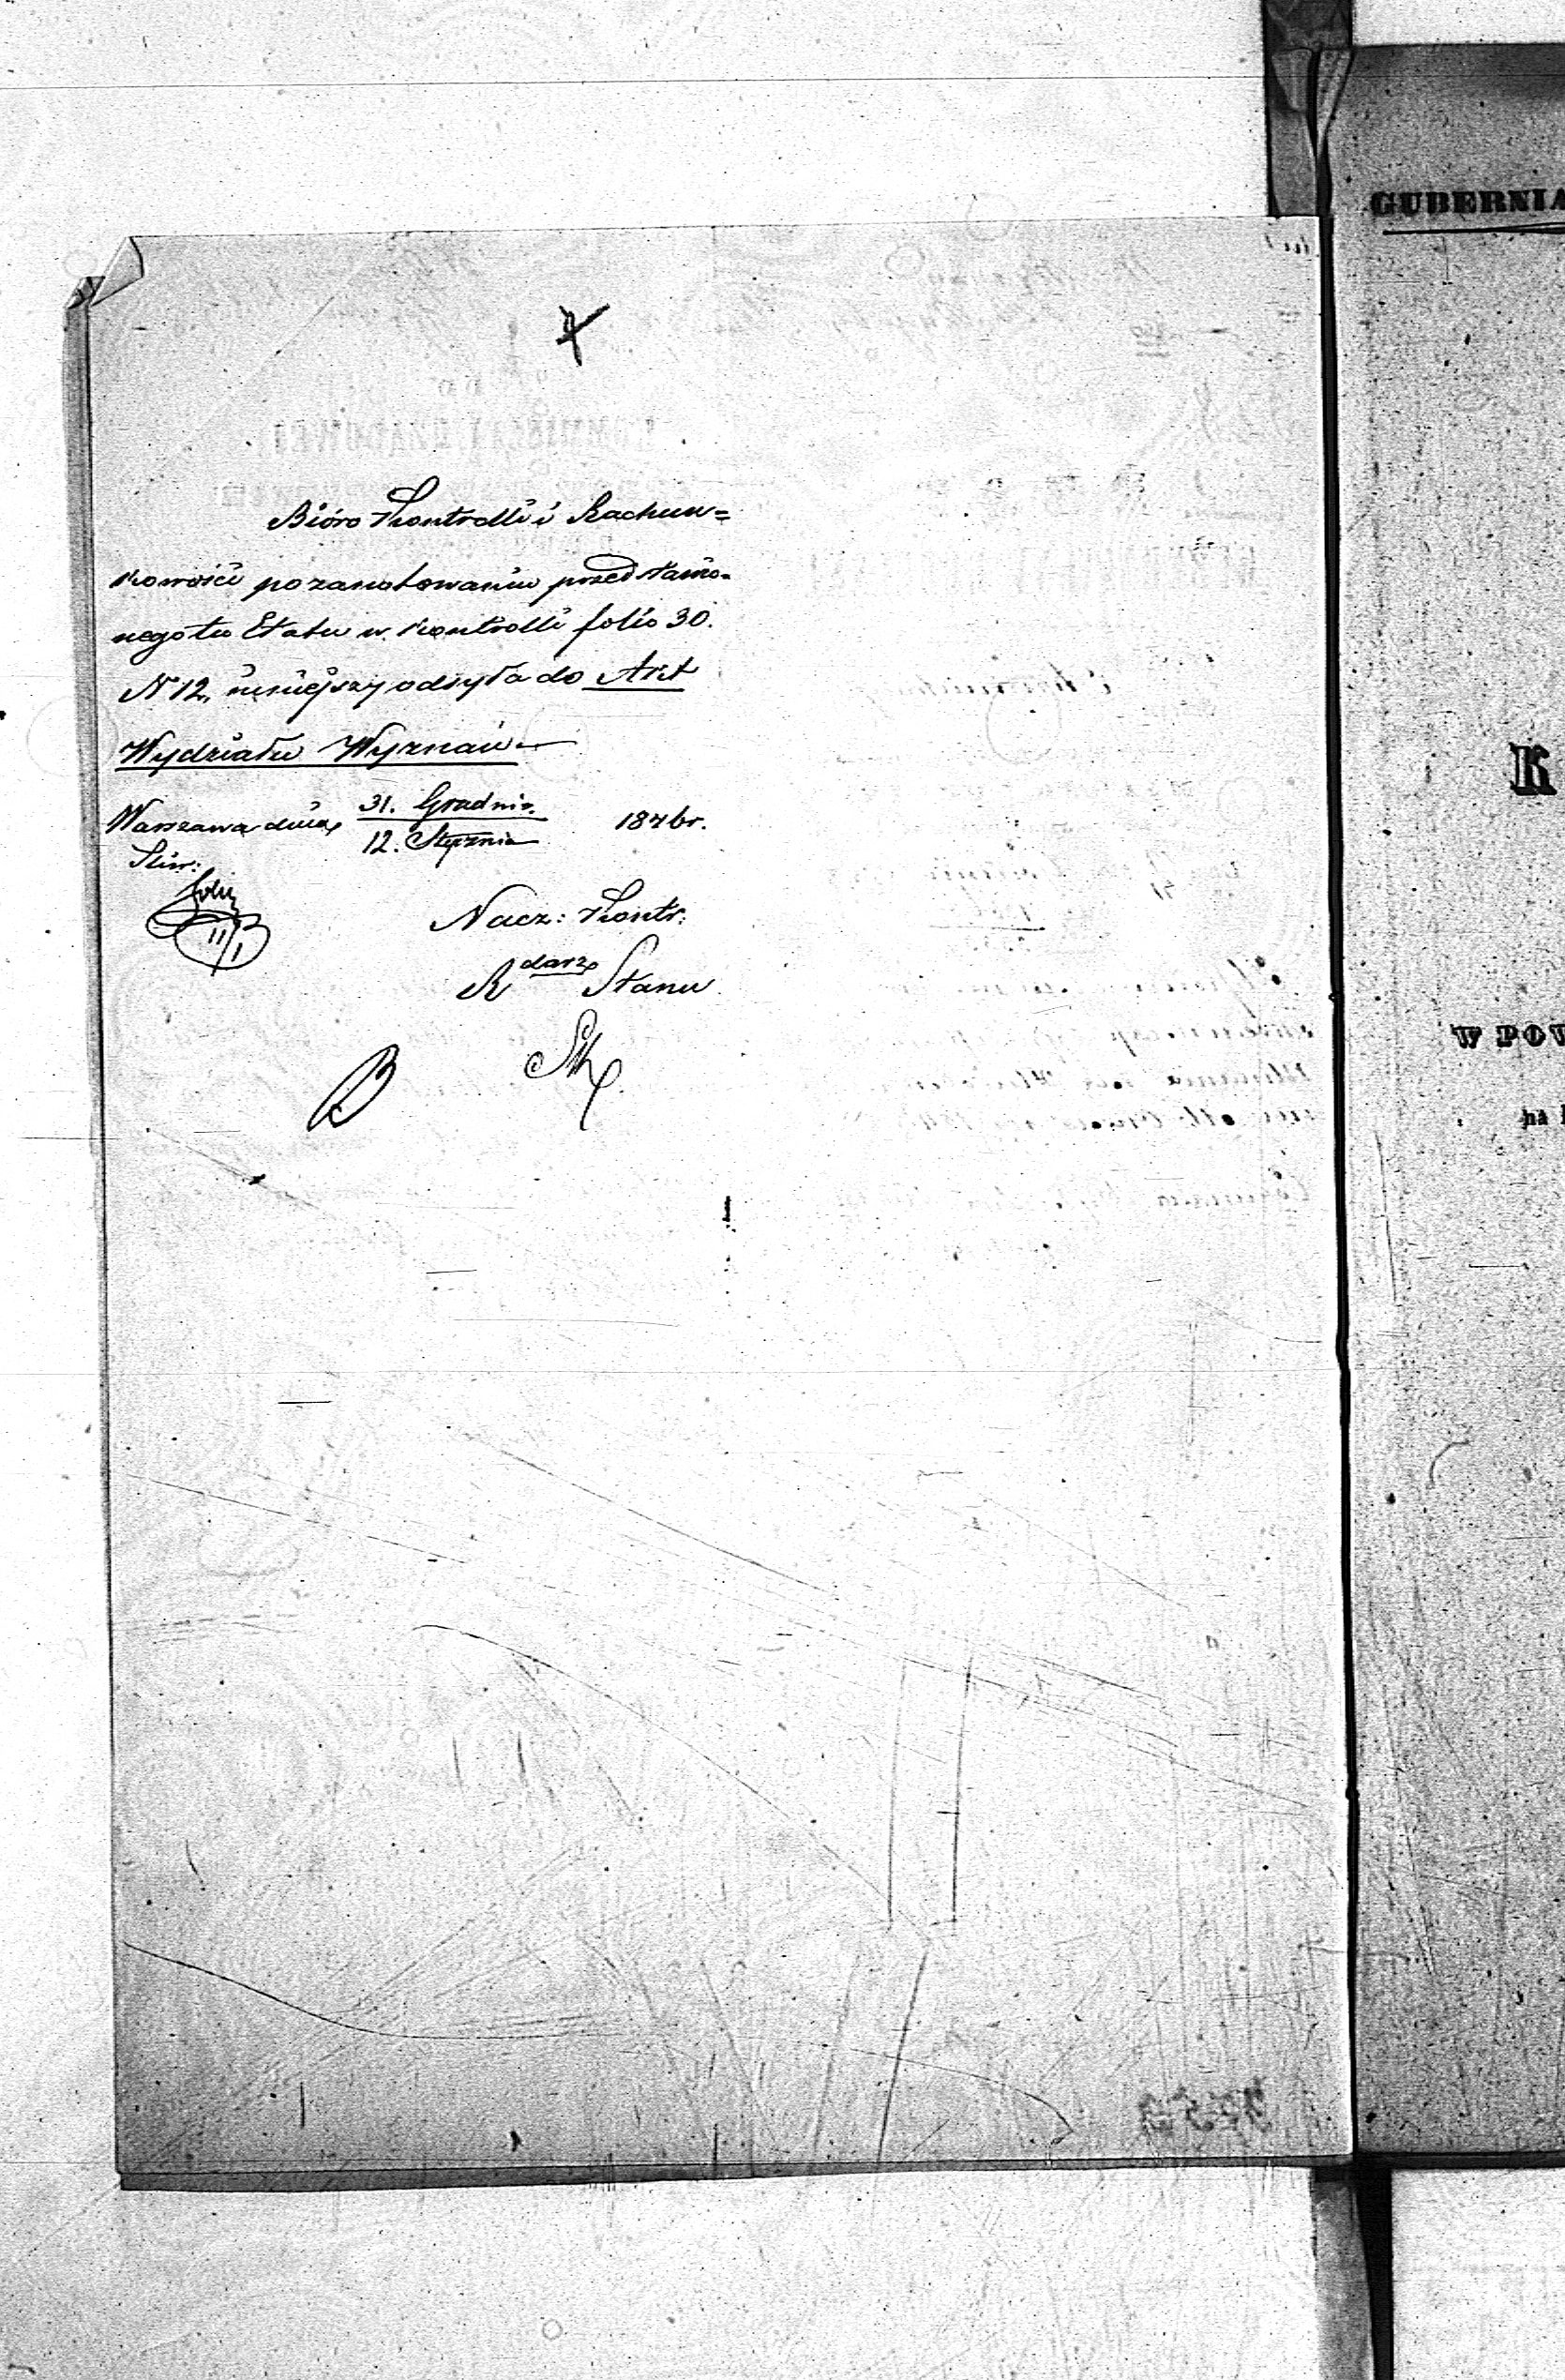 Bióro Kontrolli i Rachun=
kowości po zanotowaniu przedstawio=
nego tu Etatu w Kontrolli folio 30.
N 12. niniejszy odsyła do Akt
Wydziału Wyznań
31. Grudnia
Warszawa dnia 1846 r.
12. Stycznia
Nacz: Kontr:
R darz Stanu
GUBERNIA
K
W POW
na